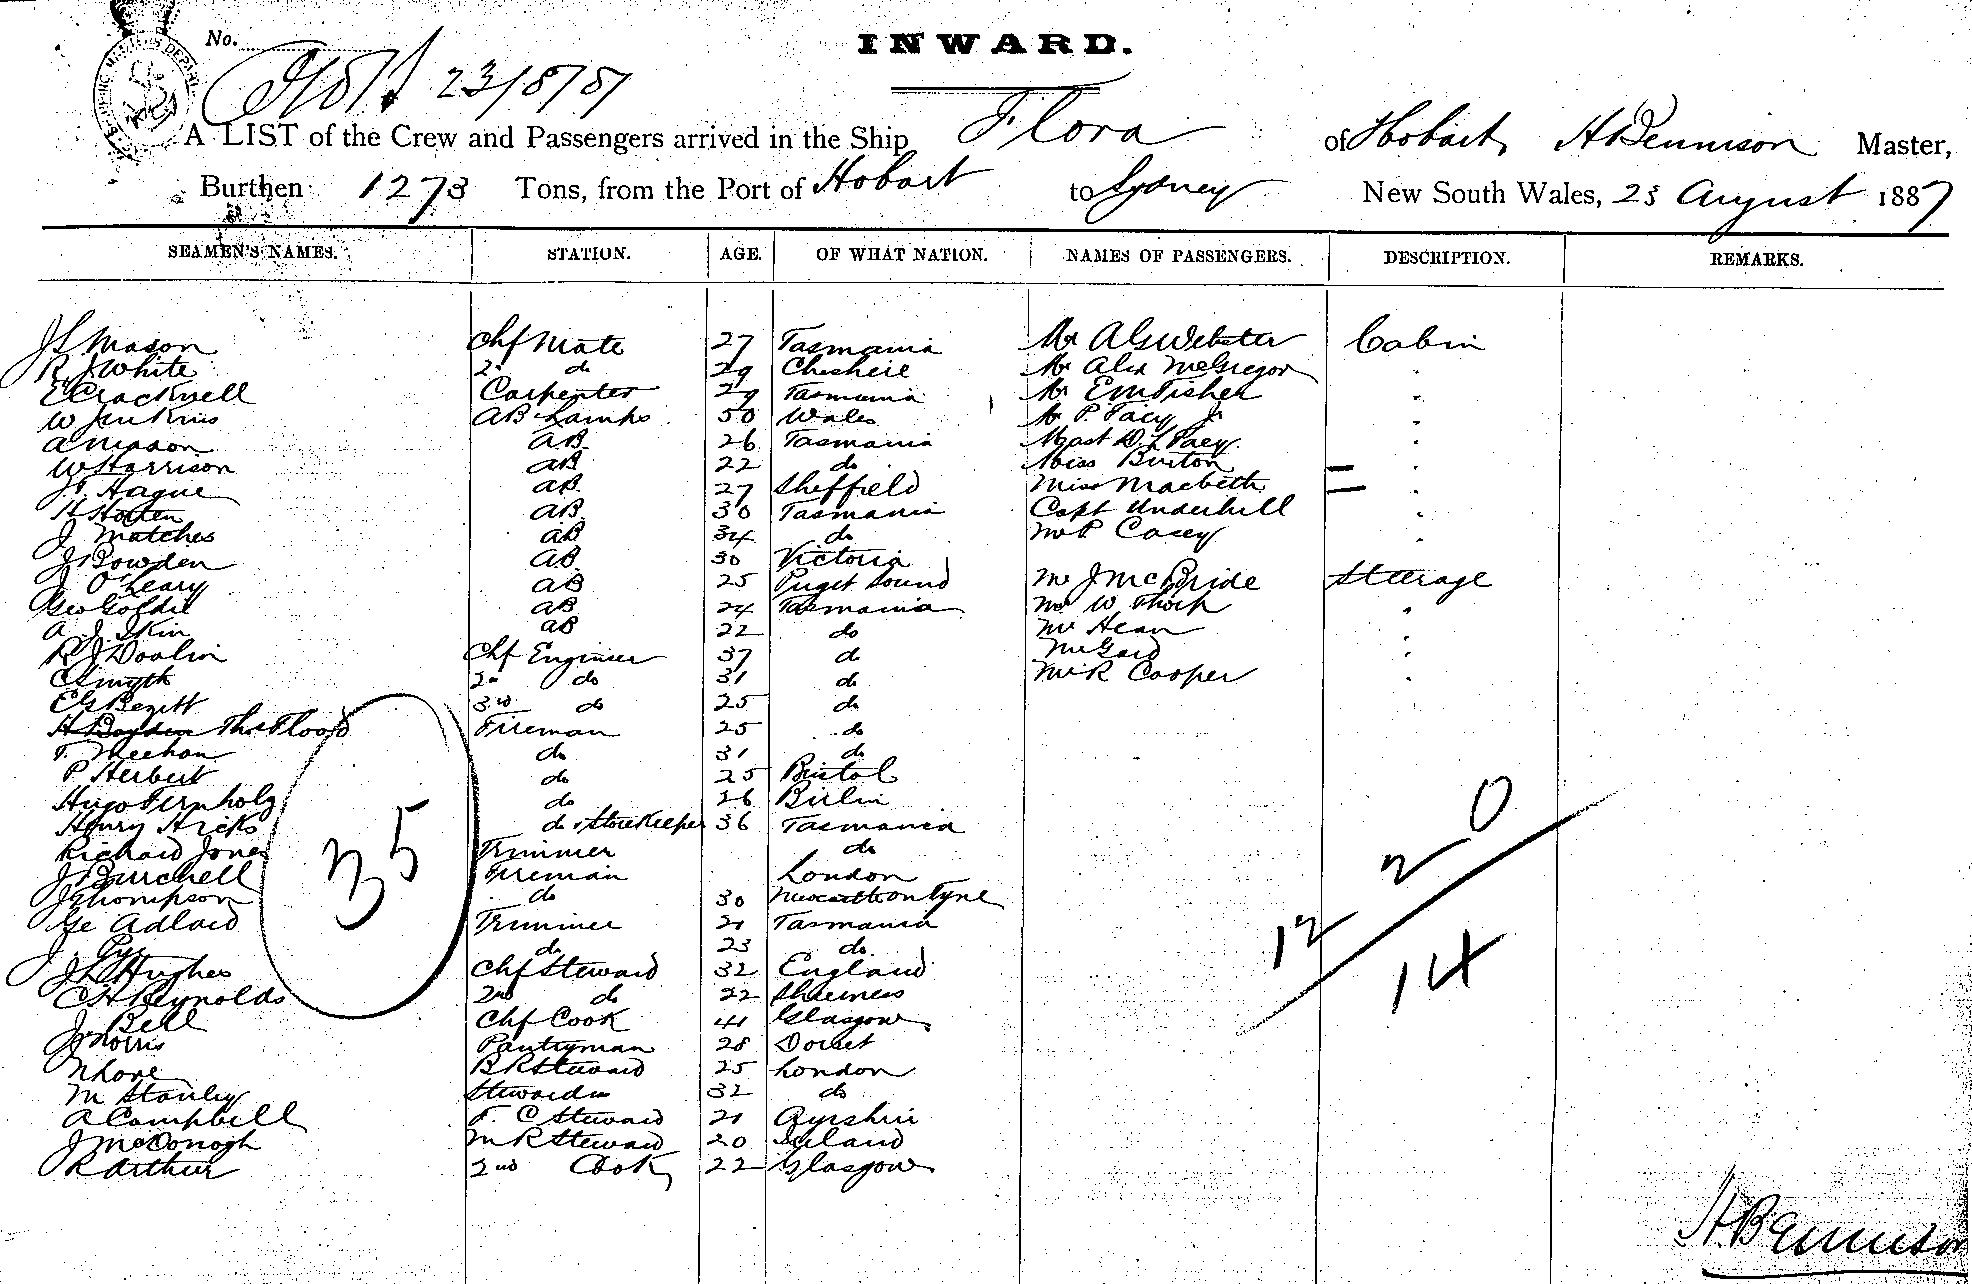 No.
INWARD.
23/8/87
A LIST of the Crew and Passengers arrived in the Ship Flora of Hobart, H Bennison Master,
Burthen 1273 Tons, from the Port of Hobart to Sydney New South Wales, 23 August 1887
SEAMEN'S NAMES. STATION. AGE. OF WHAT NATION. NAMES OF PASSENGERS. DESCRIPTION. REMARKS.
J S Mason Chf Mate 27 Tasmania Mr A G Webster Cabin
R J White 2 do 29 Cheshire Mr Alex McGregor "
E Cracknell Carpenter 29 Tasmania Mr E M Fisher "
W Jenkins AB Lamps 50 Wales Mr P. Facy Jr "
A Mason AB 26 Tasmania Mast D. L Facy "
W Harrison AB 22 do Miss Burton "
J. T Hague AB 27 Sheffield Miss Macbeth "
H Holten AB 30 Tasmania Capt Underhill "
J Matches AB 34 do Mr P Casey "
J Bowden AB 30 Victoria
J O'Leary AB 25 Puget Sound Mr J McBride Steerage
Geo Goldie AB 24 Tasmania Mr W Thorp "
A. J. Skin AB 22 do Mr Hean "
R J Doolin Chf Engineer 37 do "
C Smyth 2nd do 31 do Mr R Cooper "
E G Bezitt 3rd do 25 do
H Boyden Thos Flood Fireman 25 do
T. Meehan do 31 do
P Herbert do 25 Bristol
Hugo Fernholz do 26 Birlin
Henry Hicks do & Storekeeper 36 Tasmania
Richard Jones Trimmer do
J Burchell Fireman London
J Thompson do 30 Newcastle on Tyne
Ge Adlard Trimmer 21 Tasmania
J. Pyr do 23 do
J L Hughes Chf Steward 32 England
C H Reynolds 2nd do 22 Sheerness
J. Bell Chf Cook 41 Glasgow
J Norris Pantryman 28 Dorset
N Lone B R Steward 25 London
M Stanley Stewardess 32 do
A Campbell F. C Steward 21 Ayrshire
J McDonogh M R Steward 20 Ireland
R Arthur 2nd Cook 22 Glasgow
35
12 2 0
14
H. Bennison